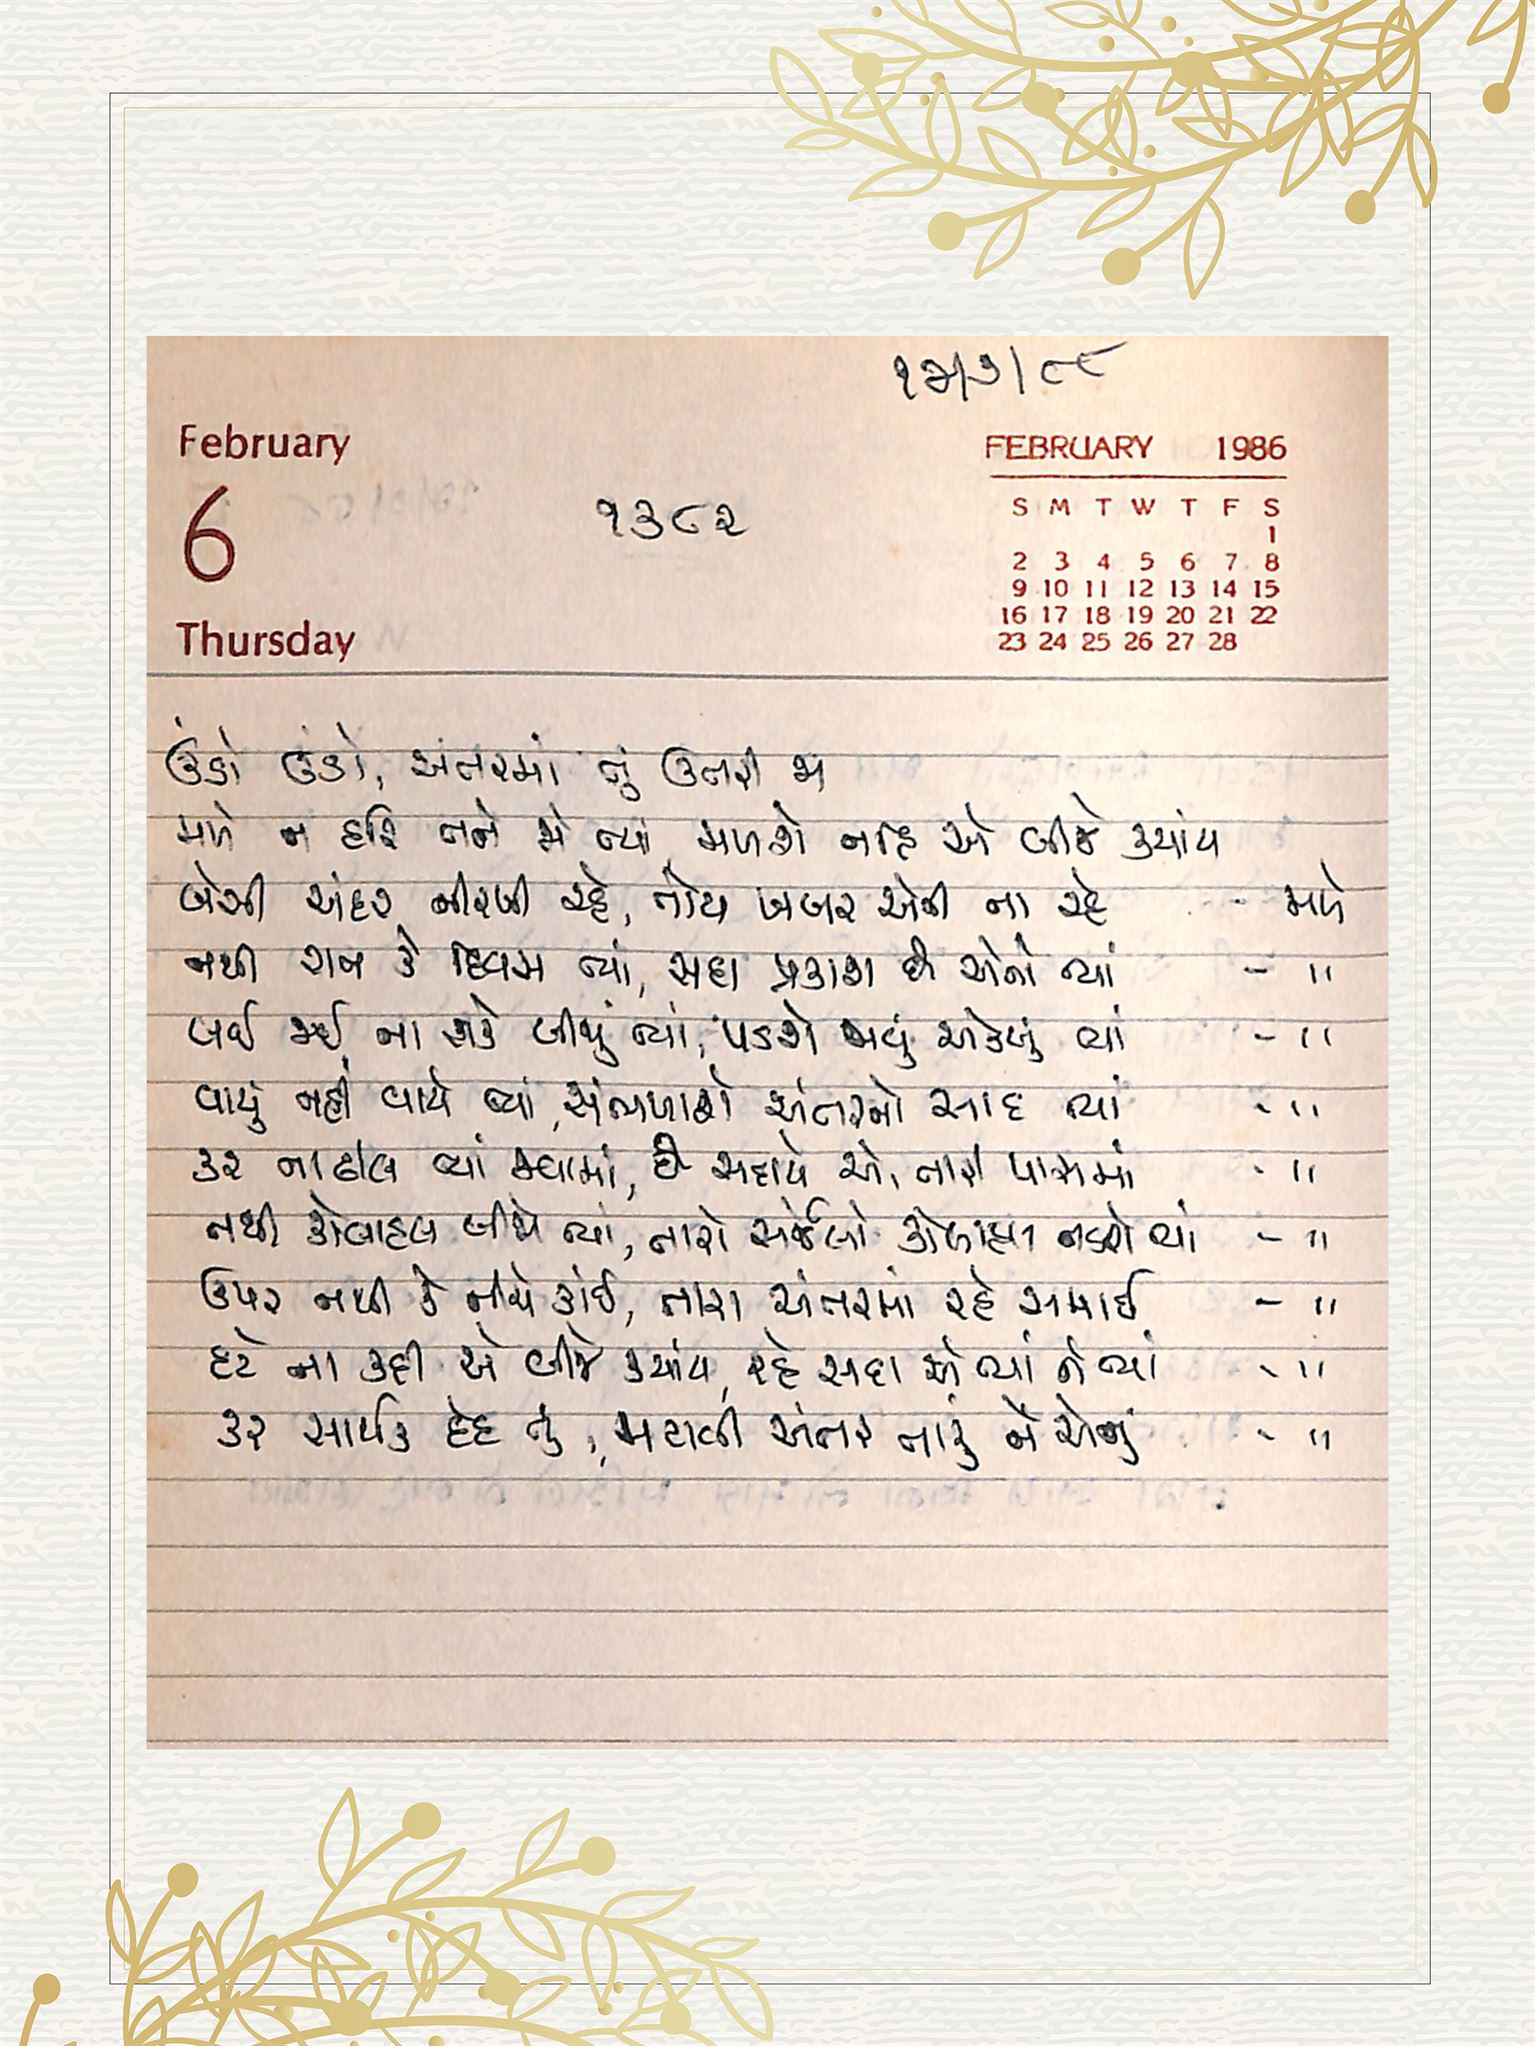 ૧૭/૭/૮૮
February
6
Thursday
૧૩૮૨
FEBRUARY 1986
S M T W T F S
1
2 3 4 5 6 7 8
9 10 11 12 13 14 15
16 17 18 19 20 21 22
23 24 25 26 27 28
ઉંડો ઉંડો, અંતરમાં તું ઉતરી જા
મળે ન હરિ તને જો ત્યાં મળશે નહિ એ બીજે ક્યાંય
બેસી અંદર નીરખી રહે, તોય ખબર એની ના રહે - મળે
નથી રાત કે દિવસ ત્યાં, સદા પ્રકાશ છે એનો ત્યાં - "
લઈ જઈ ના શકે બીજું ત્યાં, પડશે જાવું એકલું ત્યાં - "
વાયુ નહીં વાયે ત્યાં, સંભળાશે અંતરનો સાદ ત્યાં - "
કર ના ઢીલ ત્યાં જાવામાં, છે સદાયે એ તારી પાસમાં - "
નથી કોલાહલ બીજો ત્યાં, તારો સર્જેલો કોલાહલ નડશે ત્યાં - "
ઉપર નથી કે નીચે કાંઈ, તારા અંતરમાં રહે સમાઈ - "
હટે ના કદી એ બીજે ક્યાંય, રહે સદા એ ત્યાં ને ત્યાં - "
કર સાર્થક દેહ તું, અંતર તારું ને એનું - "